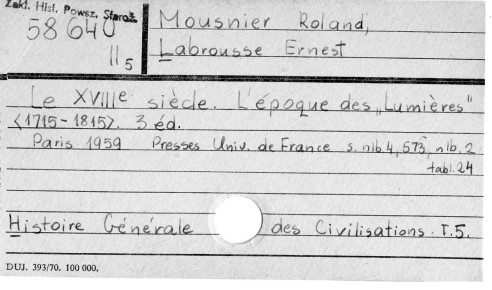 Zakł. Hist. Powsz. Staroż.
58640
II 5
Mousnier Roland,
Labrousse Ernest
Le XVIIIe siècle. L'époque des „Lumières"
<1715-1815>. 3 éd.
Paris 1959 Presses Univ. de France s. nlb. 4, 573, nlb. 2
tabl. 24
Histoire Générale des Civilisations. T. 5.
DUJ. 393/70. 100 000.